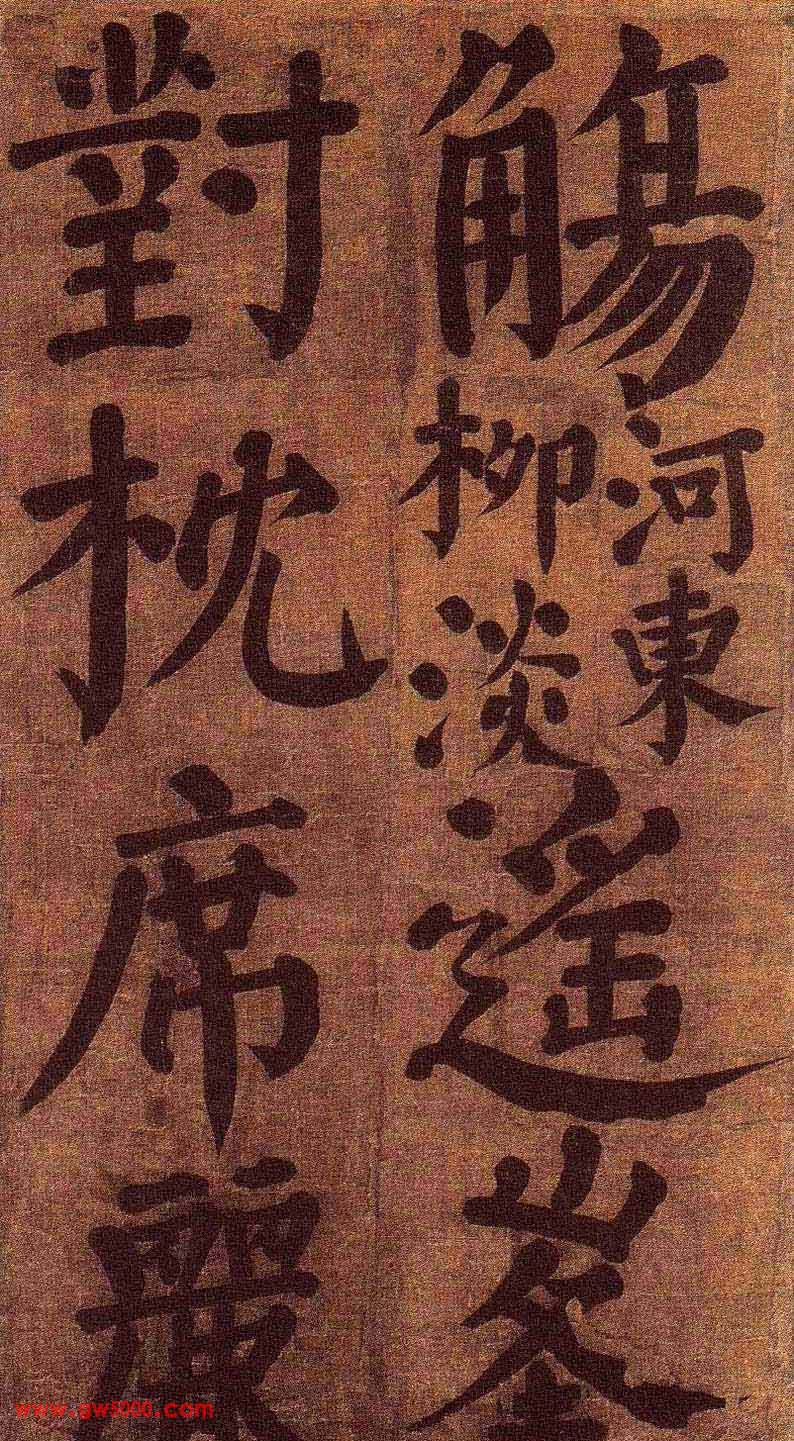 觴
河東
柳淡
遙峯
對枕席麗
www.gw5000.com